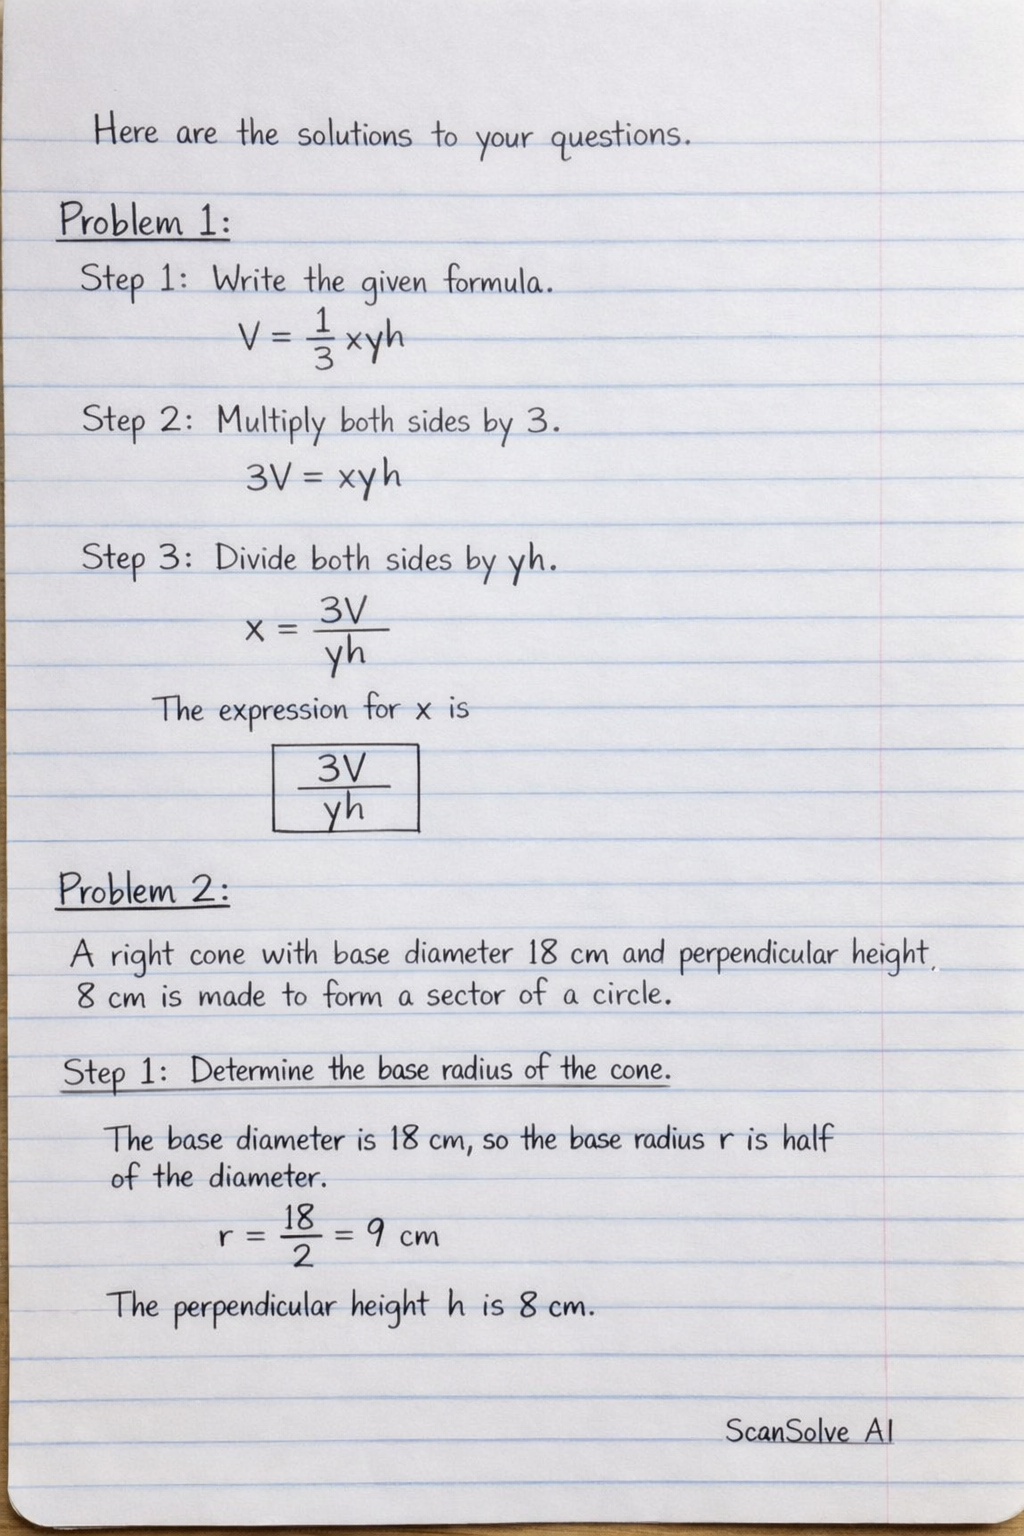 Here are the solutions to your questions.
Problem 1:
Step 1: Write the given formula.
V = 1/3 xyh
Step 2: Multiply both sides by 3.
3V = xyh
Step 3: Divide both sides by yh.
x = 3V/yh
The expression for x is
3V/yh
Problem 2:
A right cone with base diameter 18 cm and perpendicular height.
8 cm is made to form a sector of a circle.
Step 1: Determine the base radius of the cone.
The base diameter is 18 cm, so the base radius r is half
of the diameter.
r = 18/2 = 9 cm
The perpendicular height h is 8 cm.
ScanSolve AI